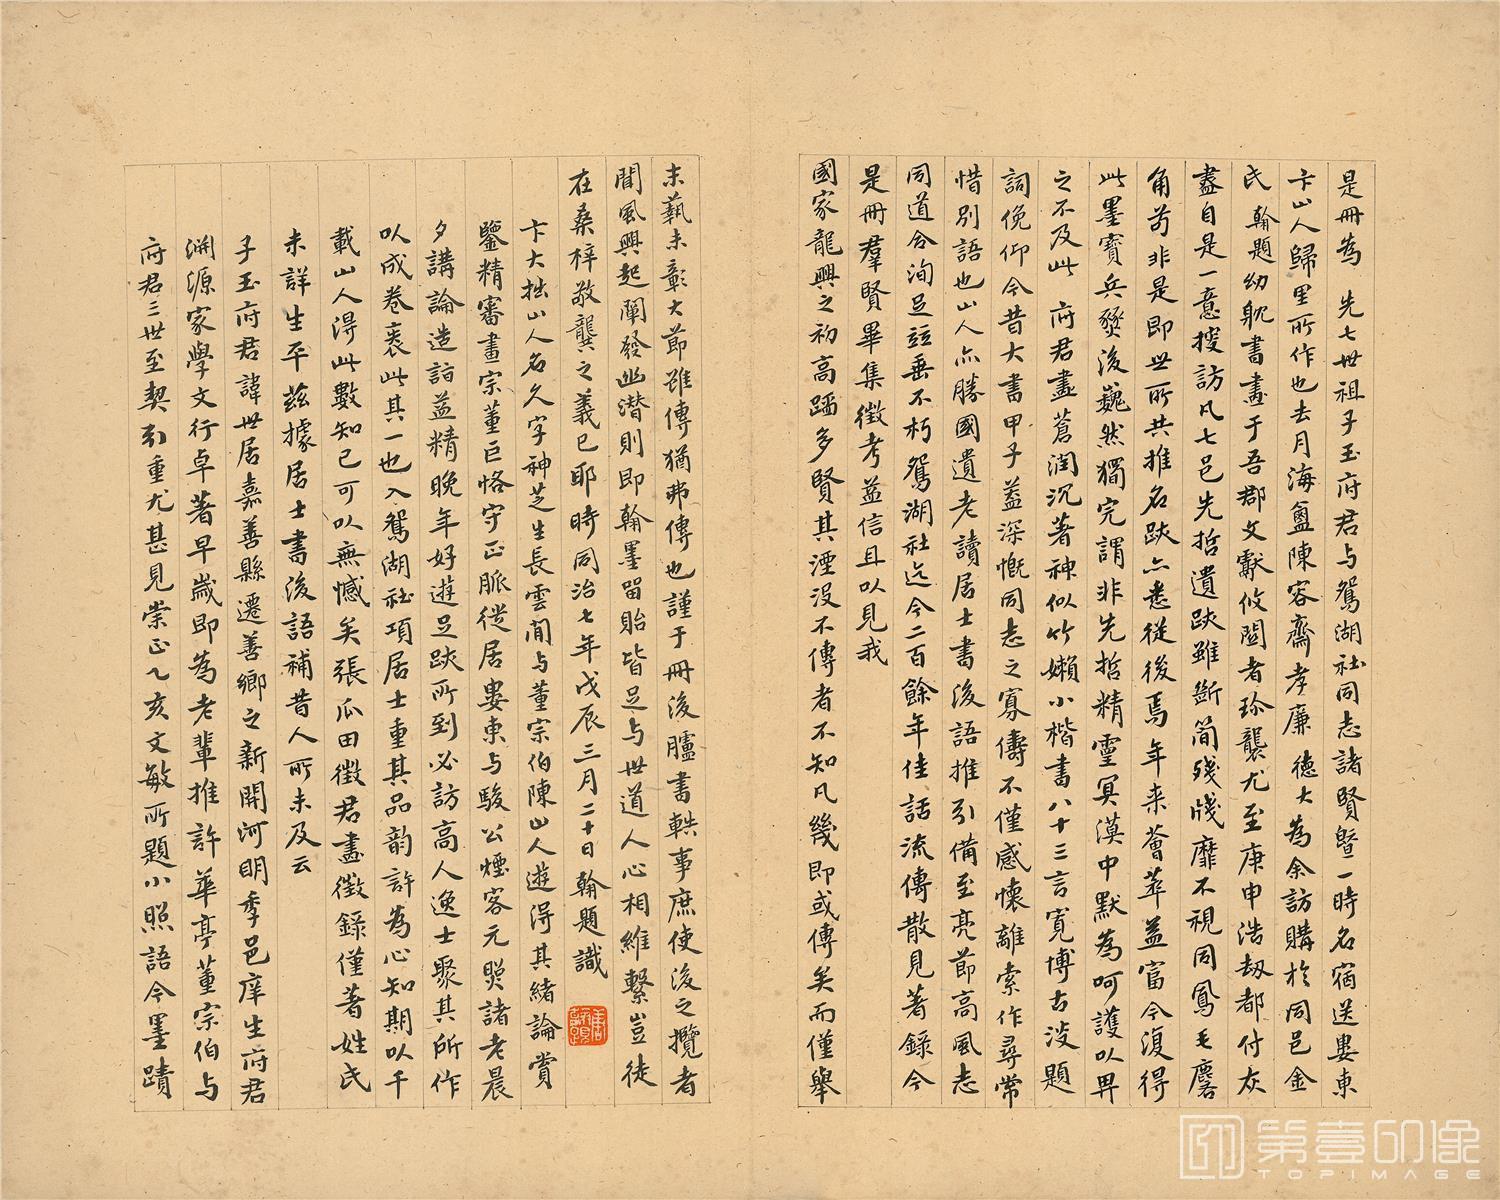 是冊為 先七世祖子玉府君与鴛湖社同志諸賢暨一時名宿送婁東
卞山人歸里所作也去月海盫陳容齋孝廉 德大為余訪購於同邑金
氏 翰題幼躭書畫于吾郡文獻攸關者珍襲尤至庚申浩刼都付灰
盡自是一意搜訪凡七邑先哲遺跡雖斷簡殘牋靡不視同鳳毛麐
角苟非是即世所共推名跡亦悉從後焉年来薈萃益富今復得
此墨寶兵燹後巍然獨完謂非先哲精靈冥漠中默為呵護以畀
之不及此 府君畫蒼潤沉著神似竹嬾小楷書八十三言寬博古淡題
詞俛仰今昔大書甲子益深慨同志之寡儔不僅感懷離索作尋常
惜別語也山人亦勝國遺老讀居士書後語推引備至亮節高風志
同道合洵足竝垂不朽鴛湖社迄今二百餘年佳話流傳散見著錄今
是冊羣賢畢集徵考益信且以見我
國家龍興之初高蹈多賢其湮没不傳者不知凡幾即或傳矣而僅舉
末蓺未彰大節雖傳猶弗傳也謹于冊後臚書軼事庶使後之攬者
聞風興起闡發幽潛則即翰墨留貽皆足与世道人心相維繫豈徒
在桑梓敬龔之義已耶時同治七年戊辰三月二十日翰題識
卞大拙山人名久字神芝生長雲間与董宗伯陳山人遊得其緒論賞
鑒精審畫宗董巨恪守正脈徙居婁東与駿公煙客元照諸老晨
夕講論造詣益精晚年好遊足跡所到必訪高人逸士聚其所作
以成卷袠此其一也入鴛湖社項居士重其品韵許為心知期以千
載山人得此數知已可以無憾矣張瓜田徵君畫徵錄僅著姓氏
未詳生平茲據居士書後語補昔人所未及云
子玉府君諱世居嘉善縣遷善鄉之新開河明季邑庠生府君
淵源家學文行卓著早歲即為老輩推許華亭董宗伯与
府君三世至契引重尤甚見崇正乙亥文敏所題小照語今墨蹟
唐翰題
第壹印像
TOPIMAGE